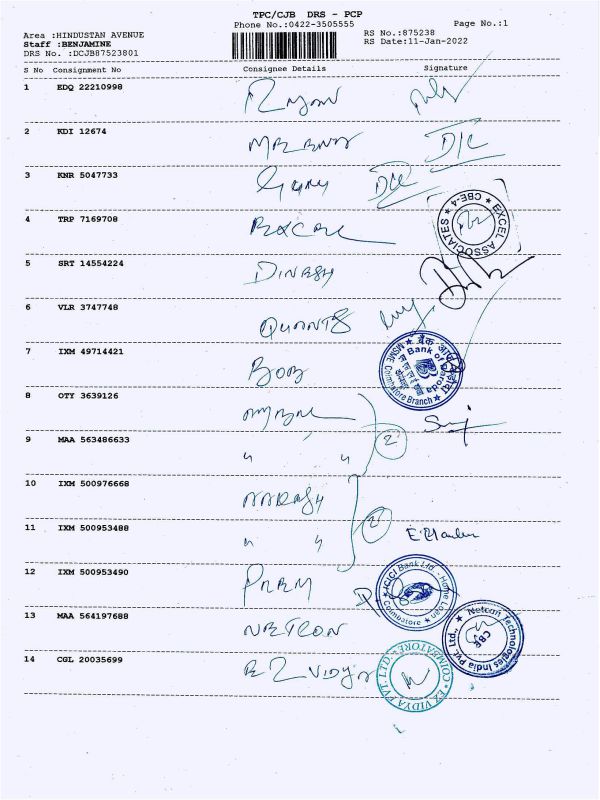 TPC/CJB DRS - PCP
Phone No.:0422-3505555
Page No.:1
Area :HINDUSTAN AVENUE
Staff :BENJAMINE
DRS No. :DCJB87523801
RS No.:875238
RS Date:11-Jan-2022
S No Consignment No Consignee Details Signature
1 EDQ 22210998
2 KDI 12674
3 KNR 5047733
4 TRP 7169708
EXCEL ASSOCIATES ★ CBE-4 ★
5 SRT 14554224 DINESH
6 VLR 3747748
7 IXM 49714421 BOB
Bank of Baroda
MSME Coimbatore Branch
8 OTY 3639126
2
9 MAA 563486633 " "
10 IXM 500976668
2
11 IXM 500953488 " "
12 IXM 500953490 PREM
ICICI Bank Ltd - Home Loan
Coimbatore
13 MAA 564197688 NETCON
Netcon Technologies India Pvt. Ltd.,
CBE
14 CGL 20035699 EZ VIDYA
EZ VIDYA PVT. LTD. COIMBATORE